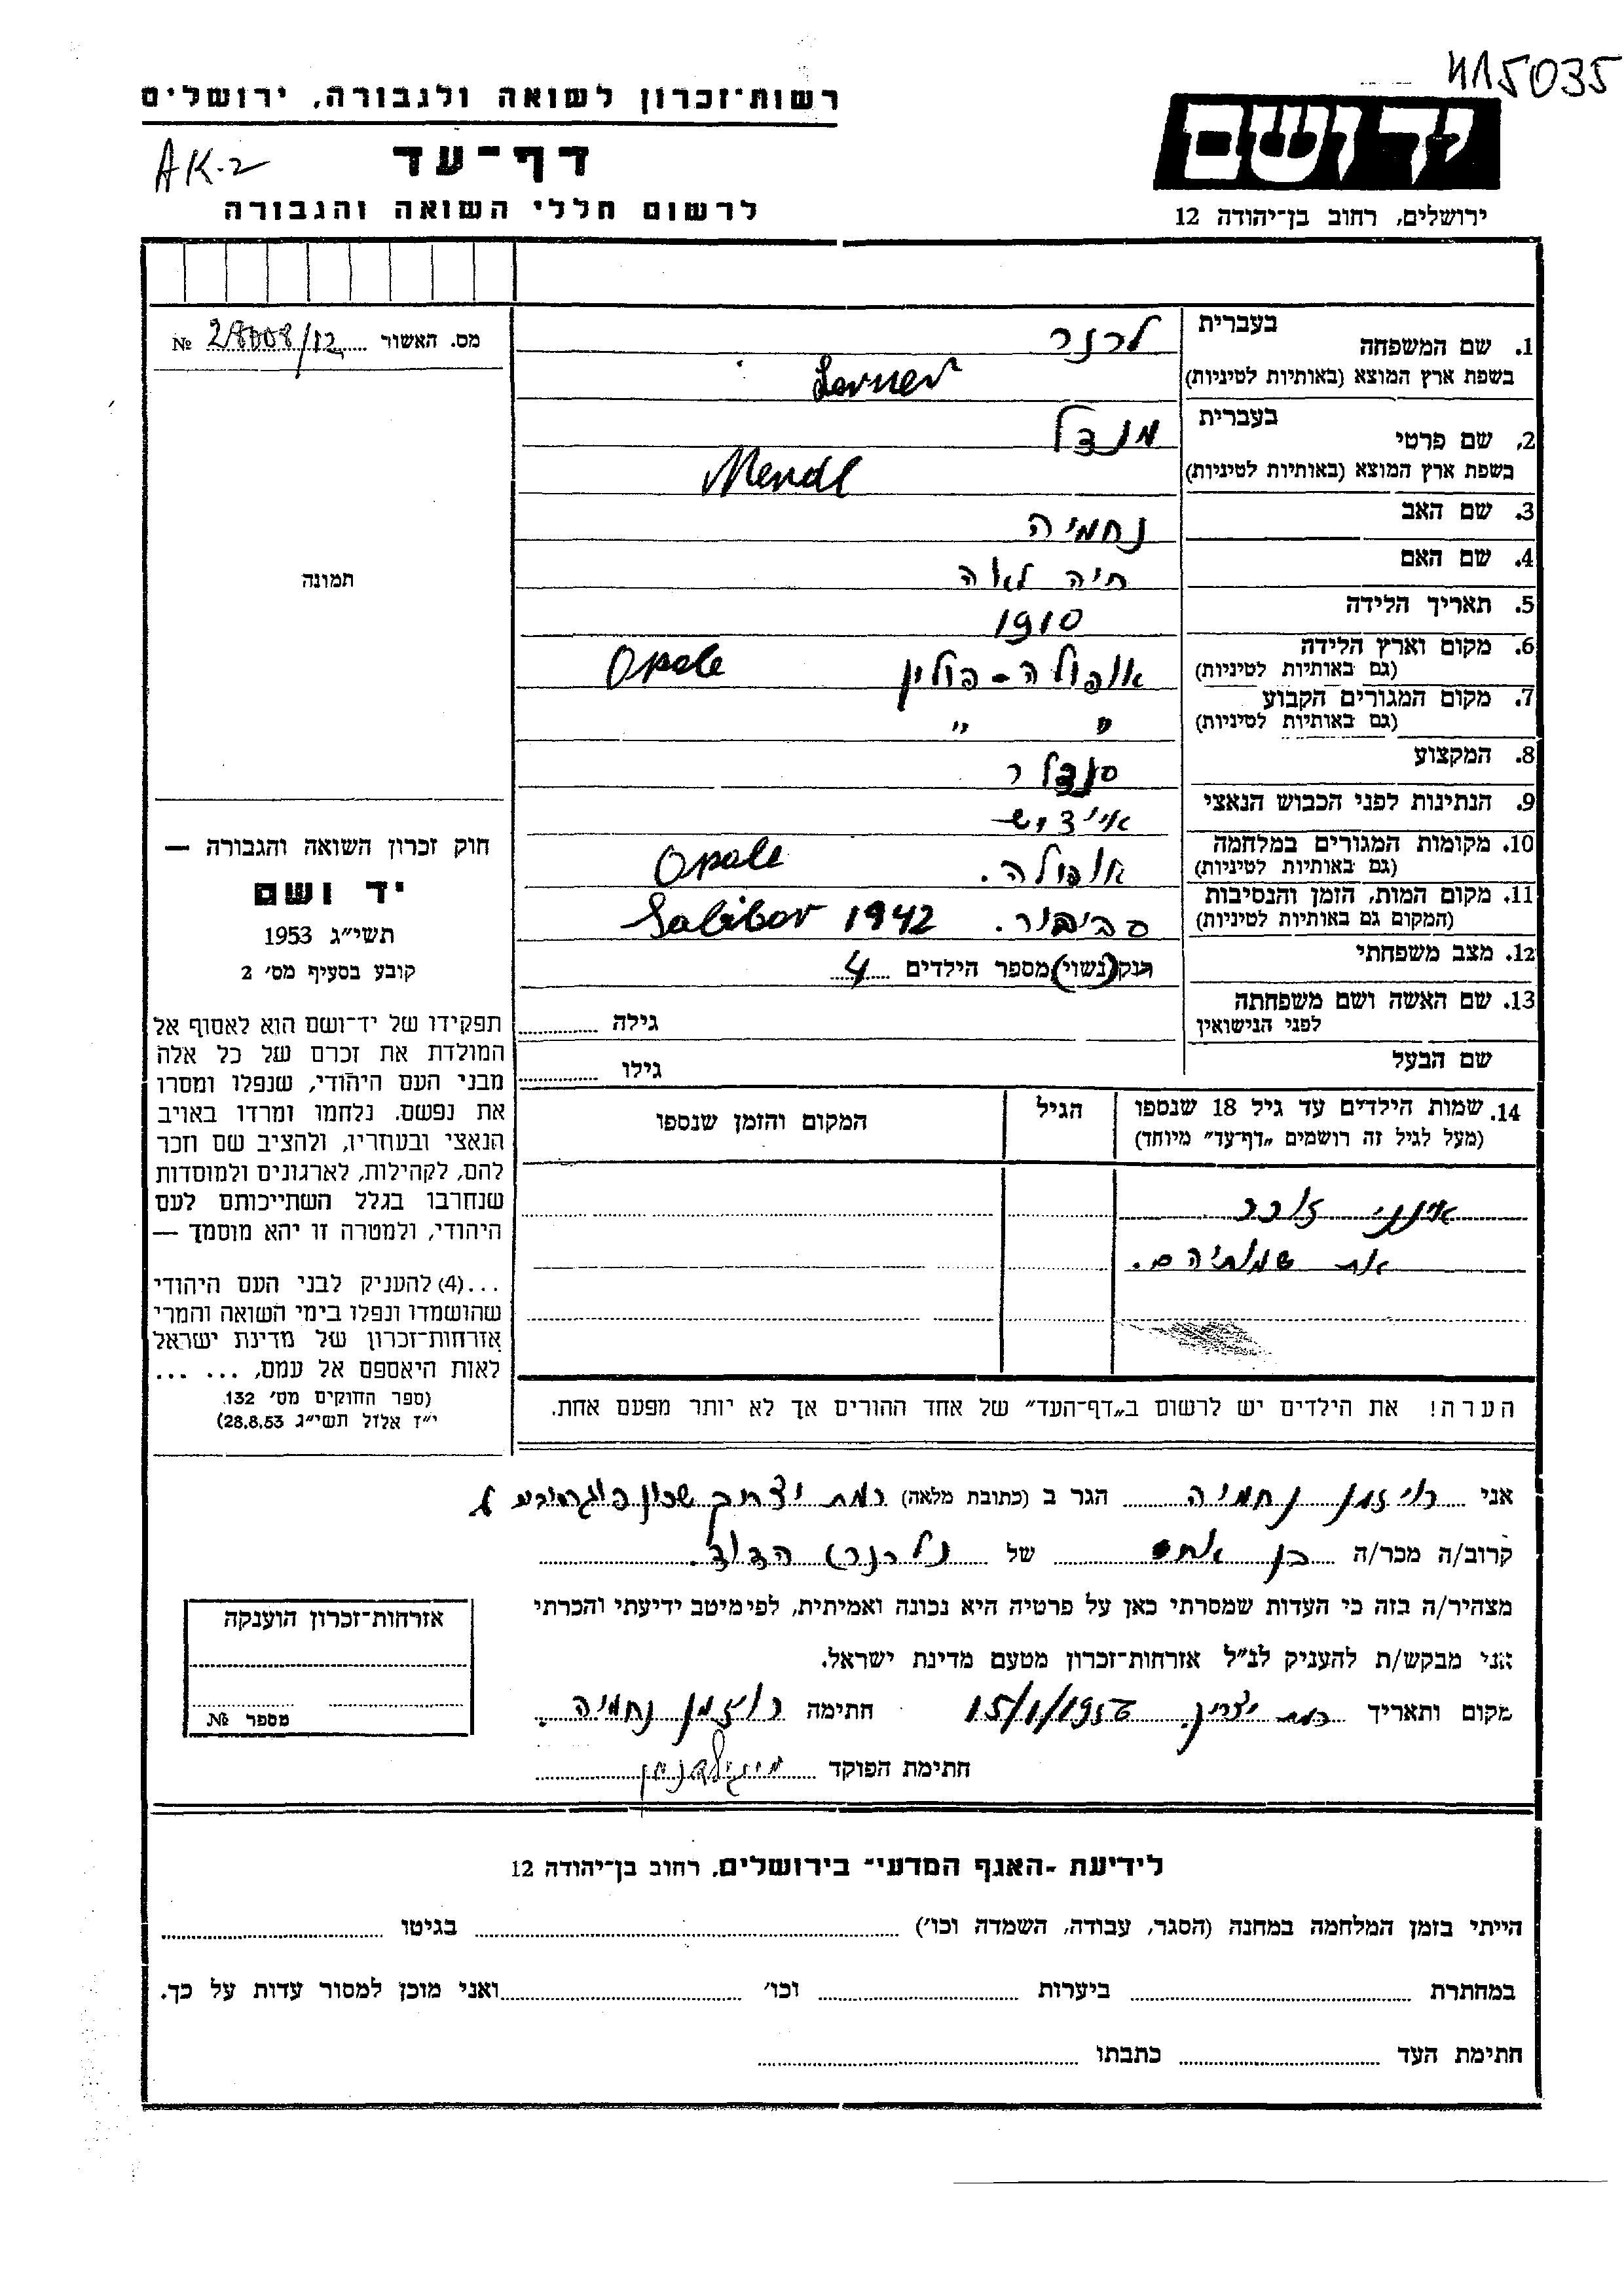 415035
רשות־זכרון לשואה ולגבורה, ירושלים
יד ושם
AK-2
דף־עד
לרשום חללי השואה והגבורה
ירושלים, רחוב בן־יהודה 12
1. שם המשפחה בעברית לרנר
בשפת ארץ המוצא (באותיות לטיניות) Lerner
מס. האשור 28008/12 №
2. שם פרטי בעברית מנדל
בשפת ארץ המוצא (באותיות לטיניות) Mendl
3. שם האב נחמיה
4. שם האם חיה לאה
תמונה
5. תאריך הלידה 1910
6. מקום וארץ הלידה (גם באותיות לטיניות) אופולה - פולין Opole
7. מקום המגורים הקבוע (גם באותיות לטיניות) " "
8. המקצוע סנדלר
9. הנתינות לפני הכבוש הנאצי
10. מקומות המגורים במלחמה (גם באותיות לטיניות) אופולה. Opole
11. מקום המות, הזמן והנסיבות (המקום גם באותיות לטיניות) סביבור. Sobibor 1942
12. מצב משפחתי רוק (נשוי) מספר הילדים 4
13. שם האשה ושם משפחתה לפני הנישואין גילה
שם הבעל גילו
14. שמות הילדים עד גיל 18 שנספו (מעל לגיל זה רושמים „דף־עד" מיוחד) הגיל המקום והזמן שנספו
אינני זוכר
את שמותיהם.
הערה! את הילדים יש לרשום ב„דף־העד" של אחד ההורים אך לא יותר מפעם אחת.
חוק זכרון השואה והגבורה —
יד ושם
תשי״ג 1953
קובע בסעיף מס׳ 2
תפקידו של יד־ושם הוא לאסוף אל
המולדת את זכרם של כל אלה
מבני העם היהודי, שנפלו ומסרו
את נפשם. נלחמו ומרדו באויב
הנאצי ובעוזריו, ולהציב שם וזכר
להם, לקהילות, לארגונים ולמוסדות
שנחרבו בגלל השתייכותם לעם
היהודי, ולמטרה זו יהא מוסמך —
...(4) להעניק לבני העם היהודי
שהושמדו ונפלו בימי השואה והמרי
אזרחות־זכרון של מדינת ישראל
לאות היאספם אל עמם, ... ...
(ספר החוקים מס׳ 132
י״ז אלול תשי״ג 28.8.53)
אני רויזמן נחמיה הגר ב (כתובת מלאה) רמת יצחק שכון
קרוב/ה מכר/ה בן אחות של נ. לרנר הדוד.
מצהיר/ה בזה כי העדות שמסרתי כאן על פרטיה היא נכונה ואמיתית, לפי מיטב ידיעתי והכרתי
אני מבקש/ת להעניק לנ״ל אזרחות־זכרון מטעם מדינת ישראל.
מקום ותאריך רמת יצחק. 15/1/1956 חתימה רוזמן נחמיה.
חתימת הפוקד
אזרחות־זכרון הוענקה
מספר №
לידיעת ־האגף המדעי־ בירושלים, רחוב בן־יהודה 12
הייתי בזמן המלחמה במחנה (הסגר, עבודה, השמדה וכו׳) בגיטו
במחתרת ביערות וכו׳ ואני מוכן למסור עדות על כך.
חתימת העד כתבתו